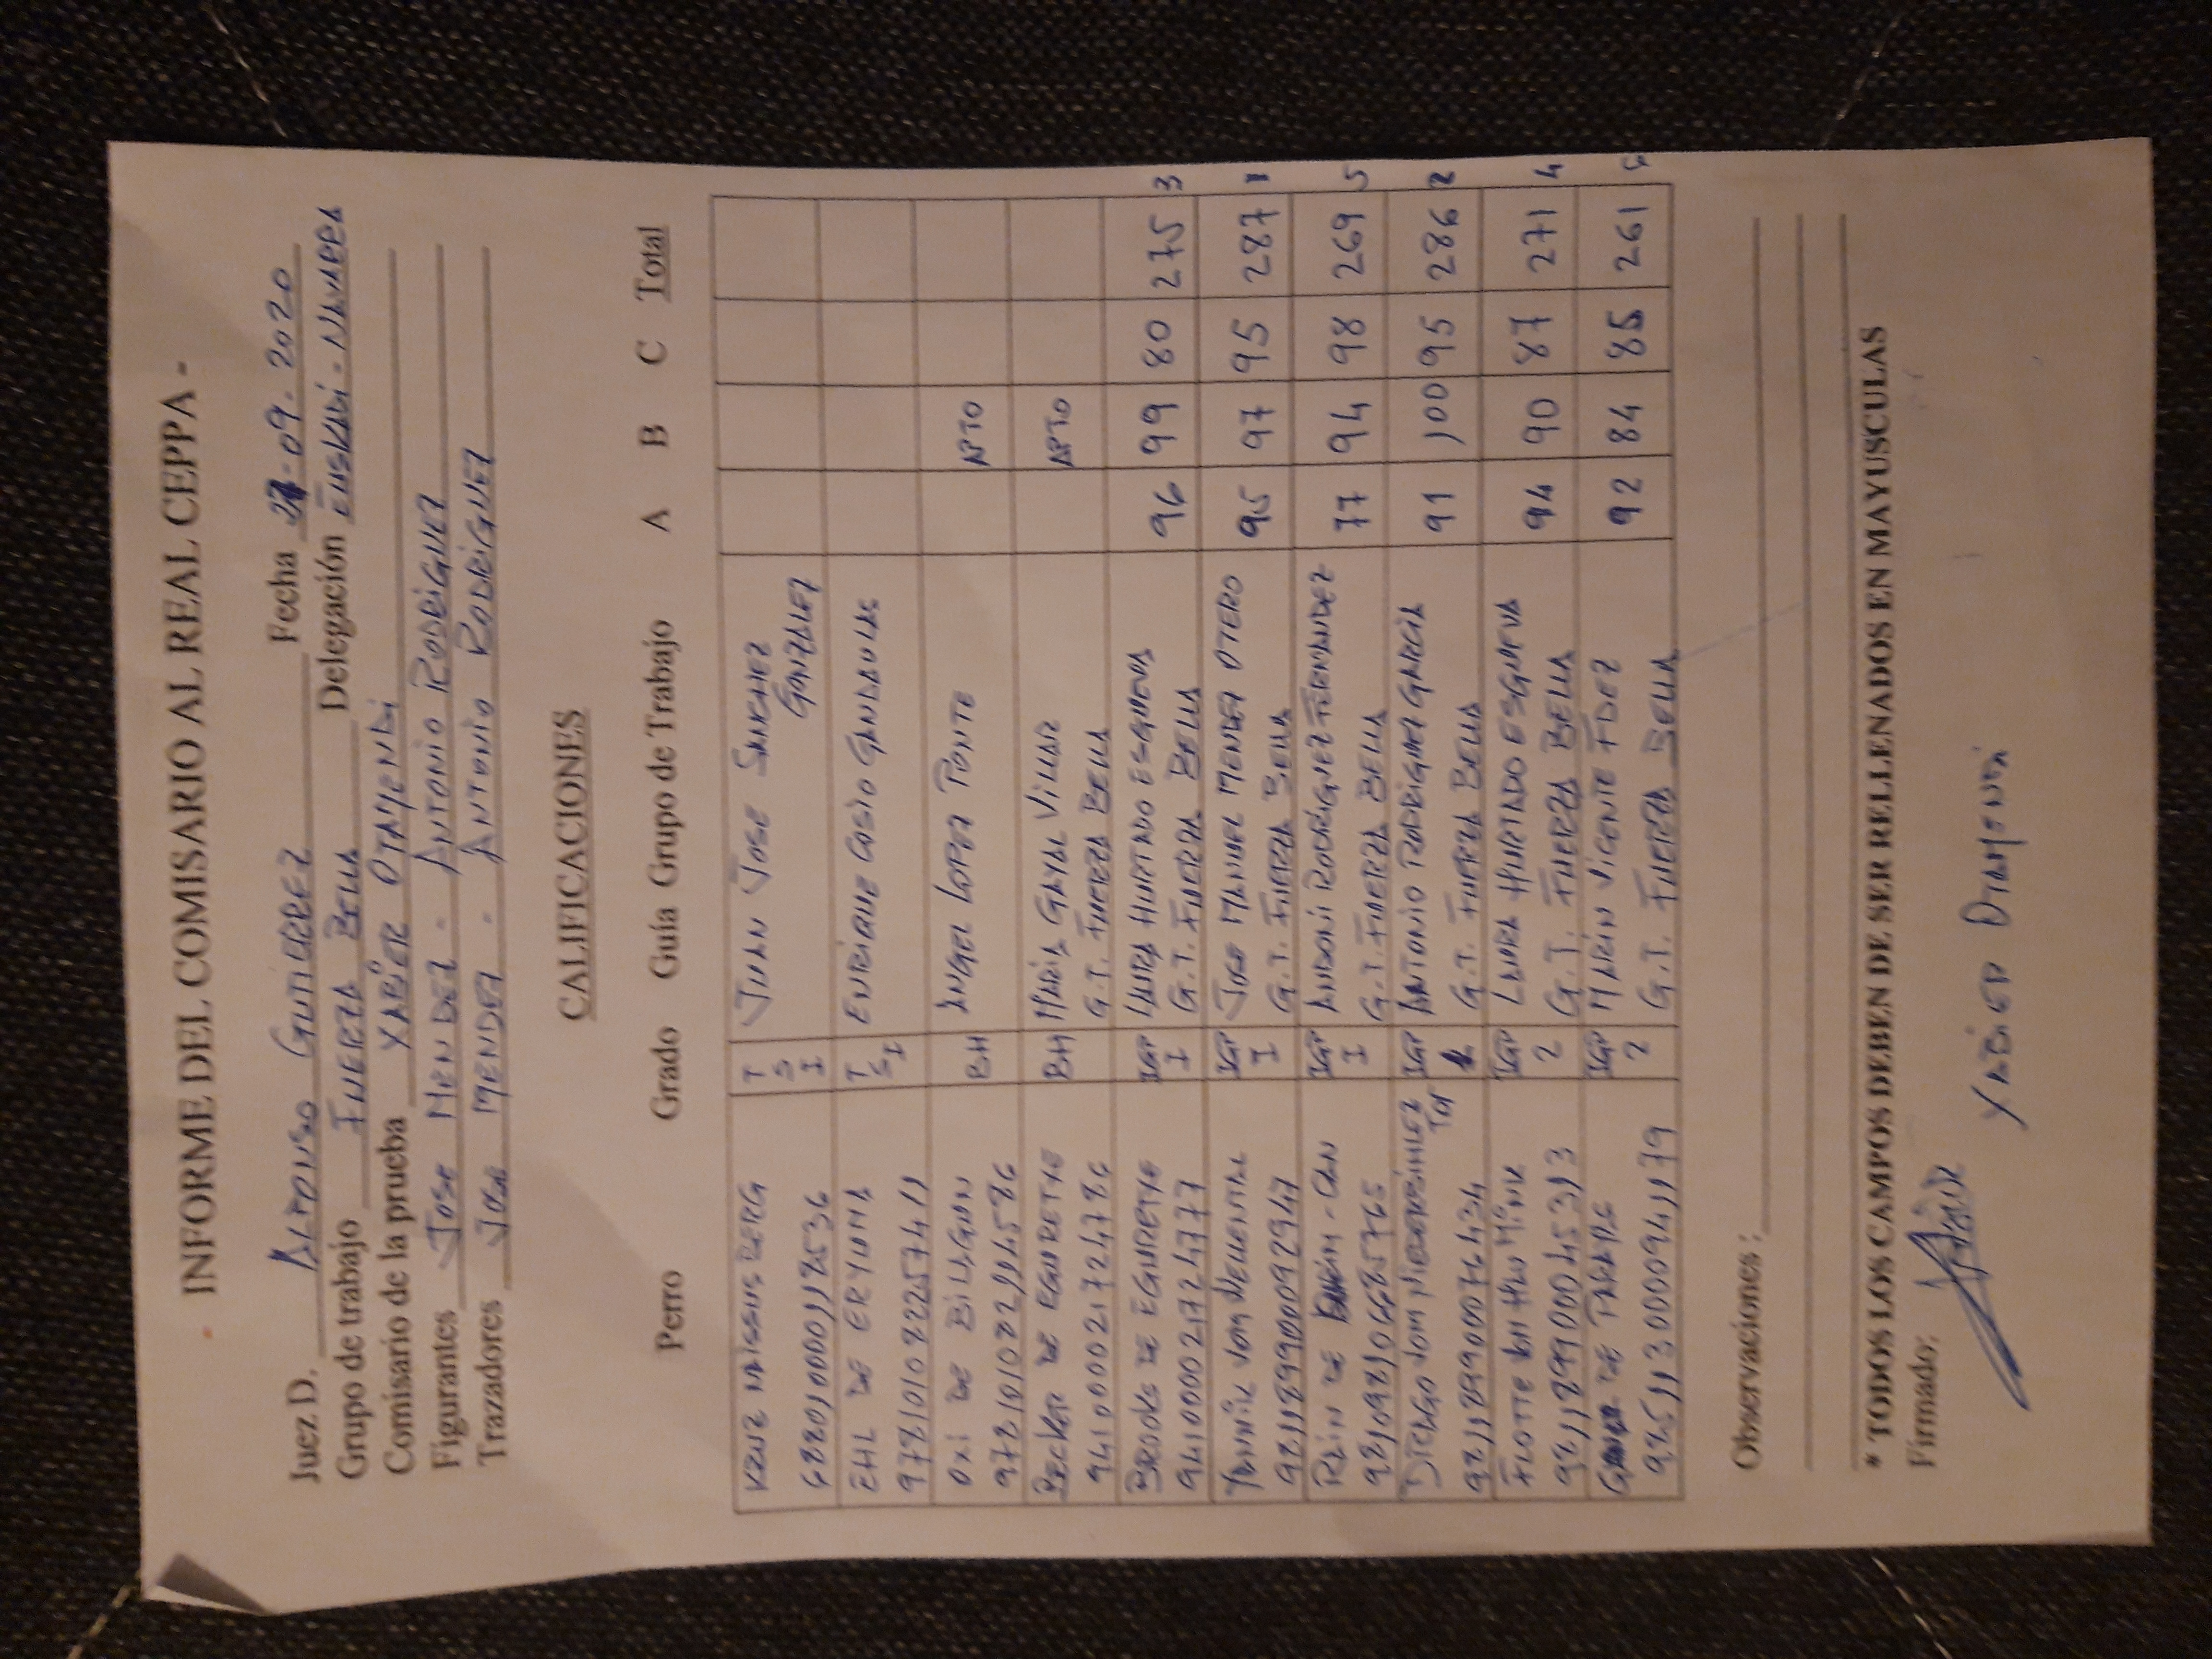 - INFORME DEL COMISARIO AL REAL CEPPA -
Juez D. ALFONSO GUTIERREZ Fecha 27-09-2020
Grupo de trabajo FUERZA BELLA Delegación EUSKADI - NAVARRA
Comisario de la prueba XABIER OTAMENDI
Figurantes JOSE MENDEZ - ANTONIO RODRIGUEZ
Trazadores JOSE MENDEZ - ANTONIO RODRIGUEZ
CALIFICACIONES
Perro Grado Guía Grupo de Trabajo A B C Total
T JUAN JOSE SANCHEZ
S GONZALEZ
I
EHL DE ERYUMA T ENRIQUE COSIO GANDARILLAS
S
I
OXI DE BILAGUN BH ANGEL LOPEZ PONTE APTO
BECKER DE EGURETXE BH MARIA GAYAL VILLAR APTO
941000021724786 G.T. FUERZA BELLA
BROOKS DE EGURETXE IGP LAURA HURTADO ESGUEVA 96 99 80 275 3
941000021724777 I G.T. FUERZA BELLA
YANNIK VOM WELLENTAL IGP JOSE MANUEL MENDEZ OTERO 95 97 95 287 1
981189900092947 I G.T. FUERZA BELLA
RAIN DE - CAN IGP ANDONI RODRIGUEZ FERNANDEZ 77 94 98 269 5
981098106685765 I G.T. FUERZA BELLA
VOM IGP ANTONIO RODRIGUEZ GARCIA 91 100 95 286 2
TOR
981189900076434 G.T. FUERZA BELLA
FLOTTE VON IGP LAURA HURTADO ESGUEVA 94 90 87 271 4
981189900045313 2 G.T. FUERZA BELLA
DE IGP MARIN VICENTE FDEZ 92 84 85 261
2 G.T. FUERZA BELLA
Observaciones :
* TODOS LOS CAMPOS DEBEN DE SER RELLENADOS EN MAYUSCULAS
Firmado:
XABIER OTAMENDI